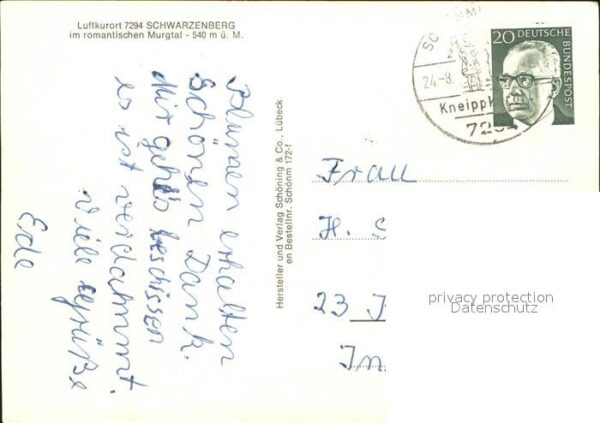 Luftkurort 7294 SCHWARZENBERG
im romantischen Murgtal - 540 m ü. M.
Blumen erhalten
Schönen Dank.
Mir geht's beschissen
es ist verdammt.
Viele Grüße
Ede
Hersteller und Verlag Schöning & Co., Lübeck
en Bestellnr. Schönm 172-f
24.-8.
Kneippk
20 DEUTSCHE
BUNDESPOST
Frau
H. S
23
privacy protection
Datenschutz